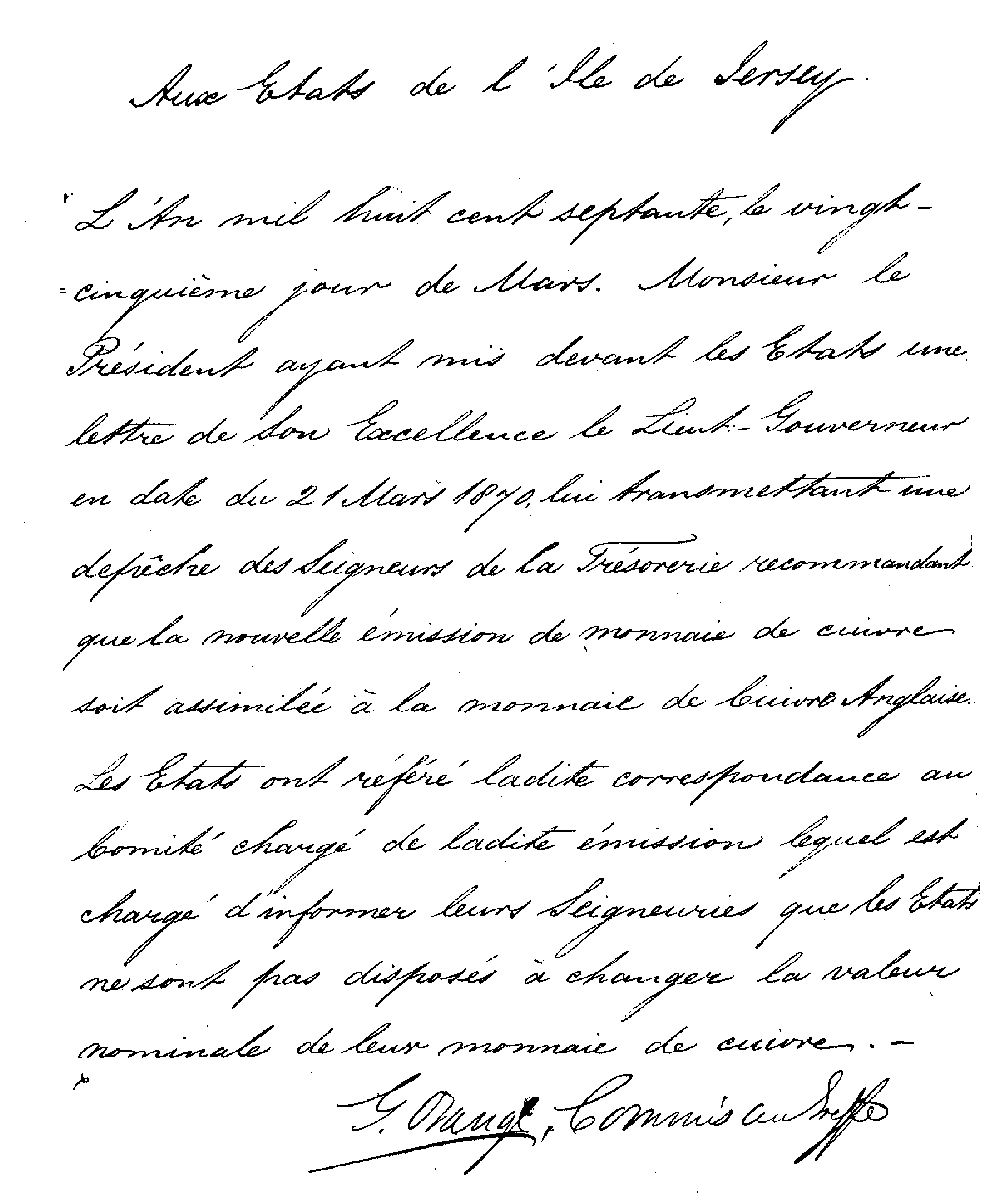 Aux Etats de l'Ile de Jersey.
L'An mil huit cent septante, le vingt-
=cinquième jour de Mars. Monsieur le
Président ayant mis devant les Etats une
lettre de Son Excellence le Lieut.-Gouverneur
en date du 21 Mars 1870, lui transmettant une
depêche des Seigneurs de la Trésorerie recommandant
que la nouvelle émission de monnaie de cuivre
soit assimilée à la monnaie de Cuivre Anglaise.
Les Etats ont référé ladite correspondance au
Comité chargé de ladite émission lequel est
chargé d'informer leurs Seigneuries que les Etats
ne sont pas disposés à changer la valeur
nominale de leur monnaie de cuivre. -
G. , Commis au Greffe